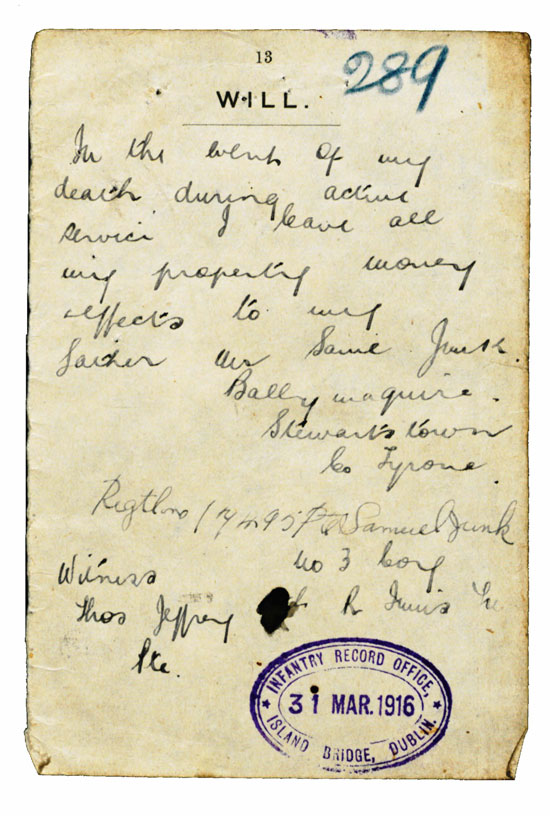 13
289
WILL.
In the event of my
death during active
service I leave all
my property money
effects to my
father Mr Samie Junk.
Ballymaguire.
Stewartstown
Co Tyrone.
Regtl no 17495 Pte Samuel Junk
Witness
No 3 Coy
Thos Jeffrey
R Innis
Pte.
INFANTRY RECORD OFFICE,
31 MAR. 1916
ISLAND BRIDGE, DUBLIN.